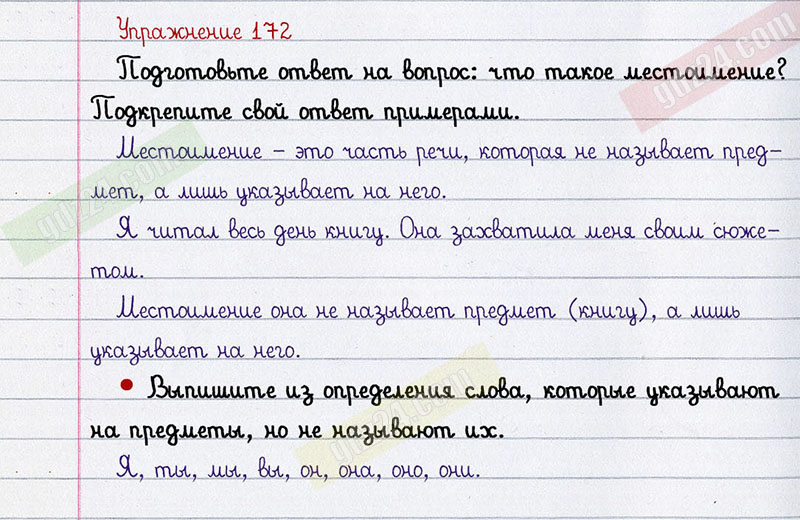 Упражнение 172
Подготовьте ответ на вопрос: что такое местоимение?
Подкрепите свой ответ примерами.
Местоимение – это часть речи, которая не называет пред-
мет, а лишь указывает на него.
Я читал весь день книгу. Она захватила меня своим сюже-
том.
Местоимение она не называет предмет (книгу), а лишь
указывает на него.
• Выпишите из определения слова, которые указывают
на предметы, но не называют их.
Я, ты, мы, вы, он, она, оно, они.
gdz24.com
gdz24.com
gdz24.com